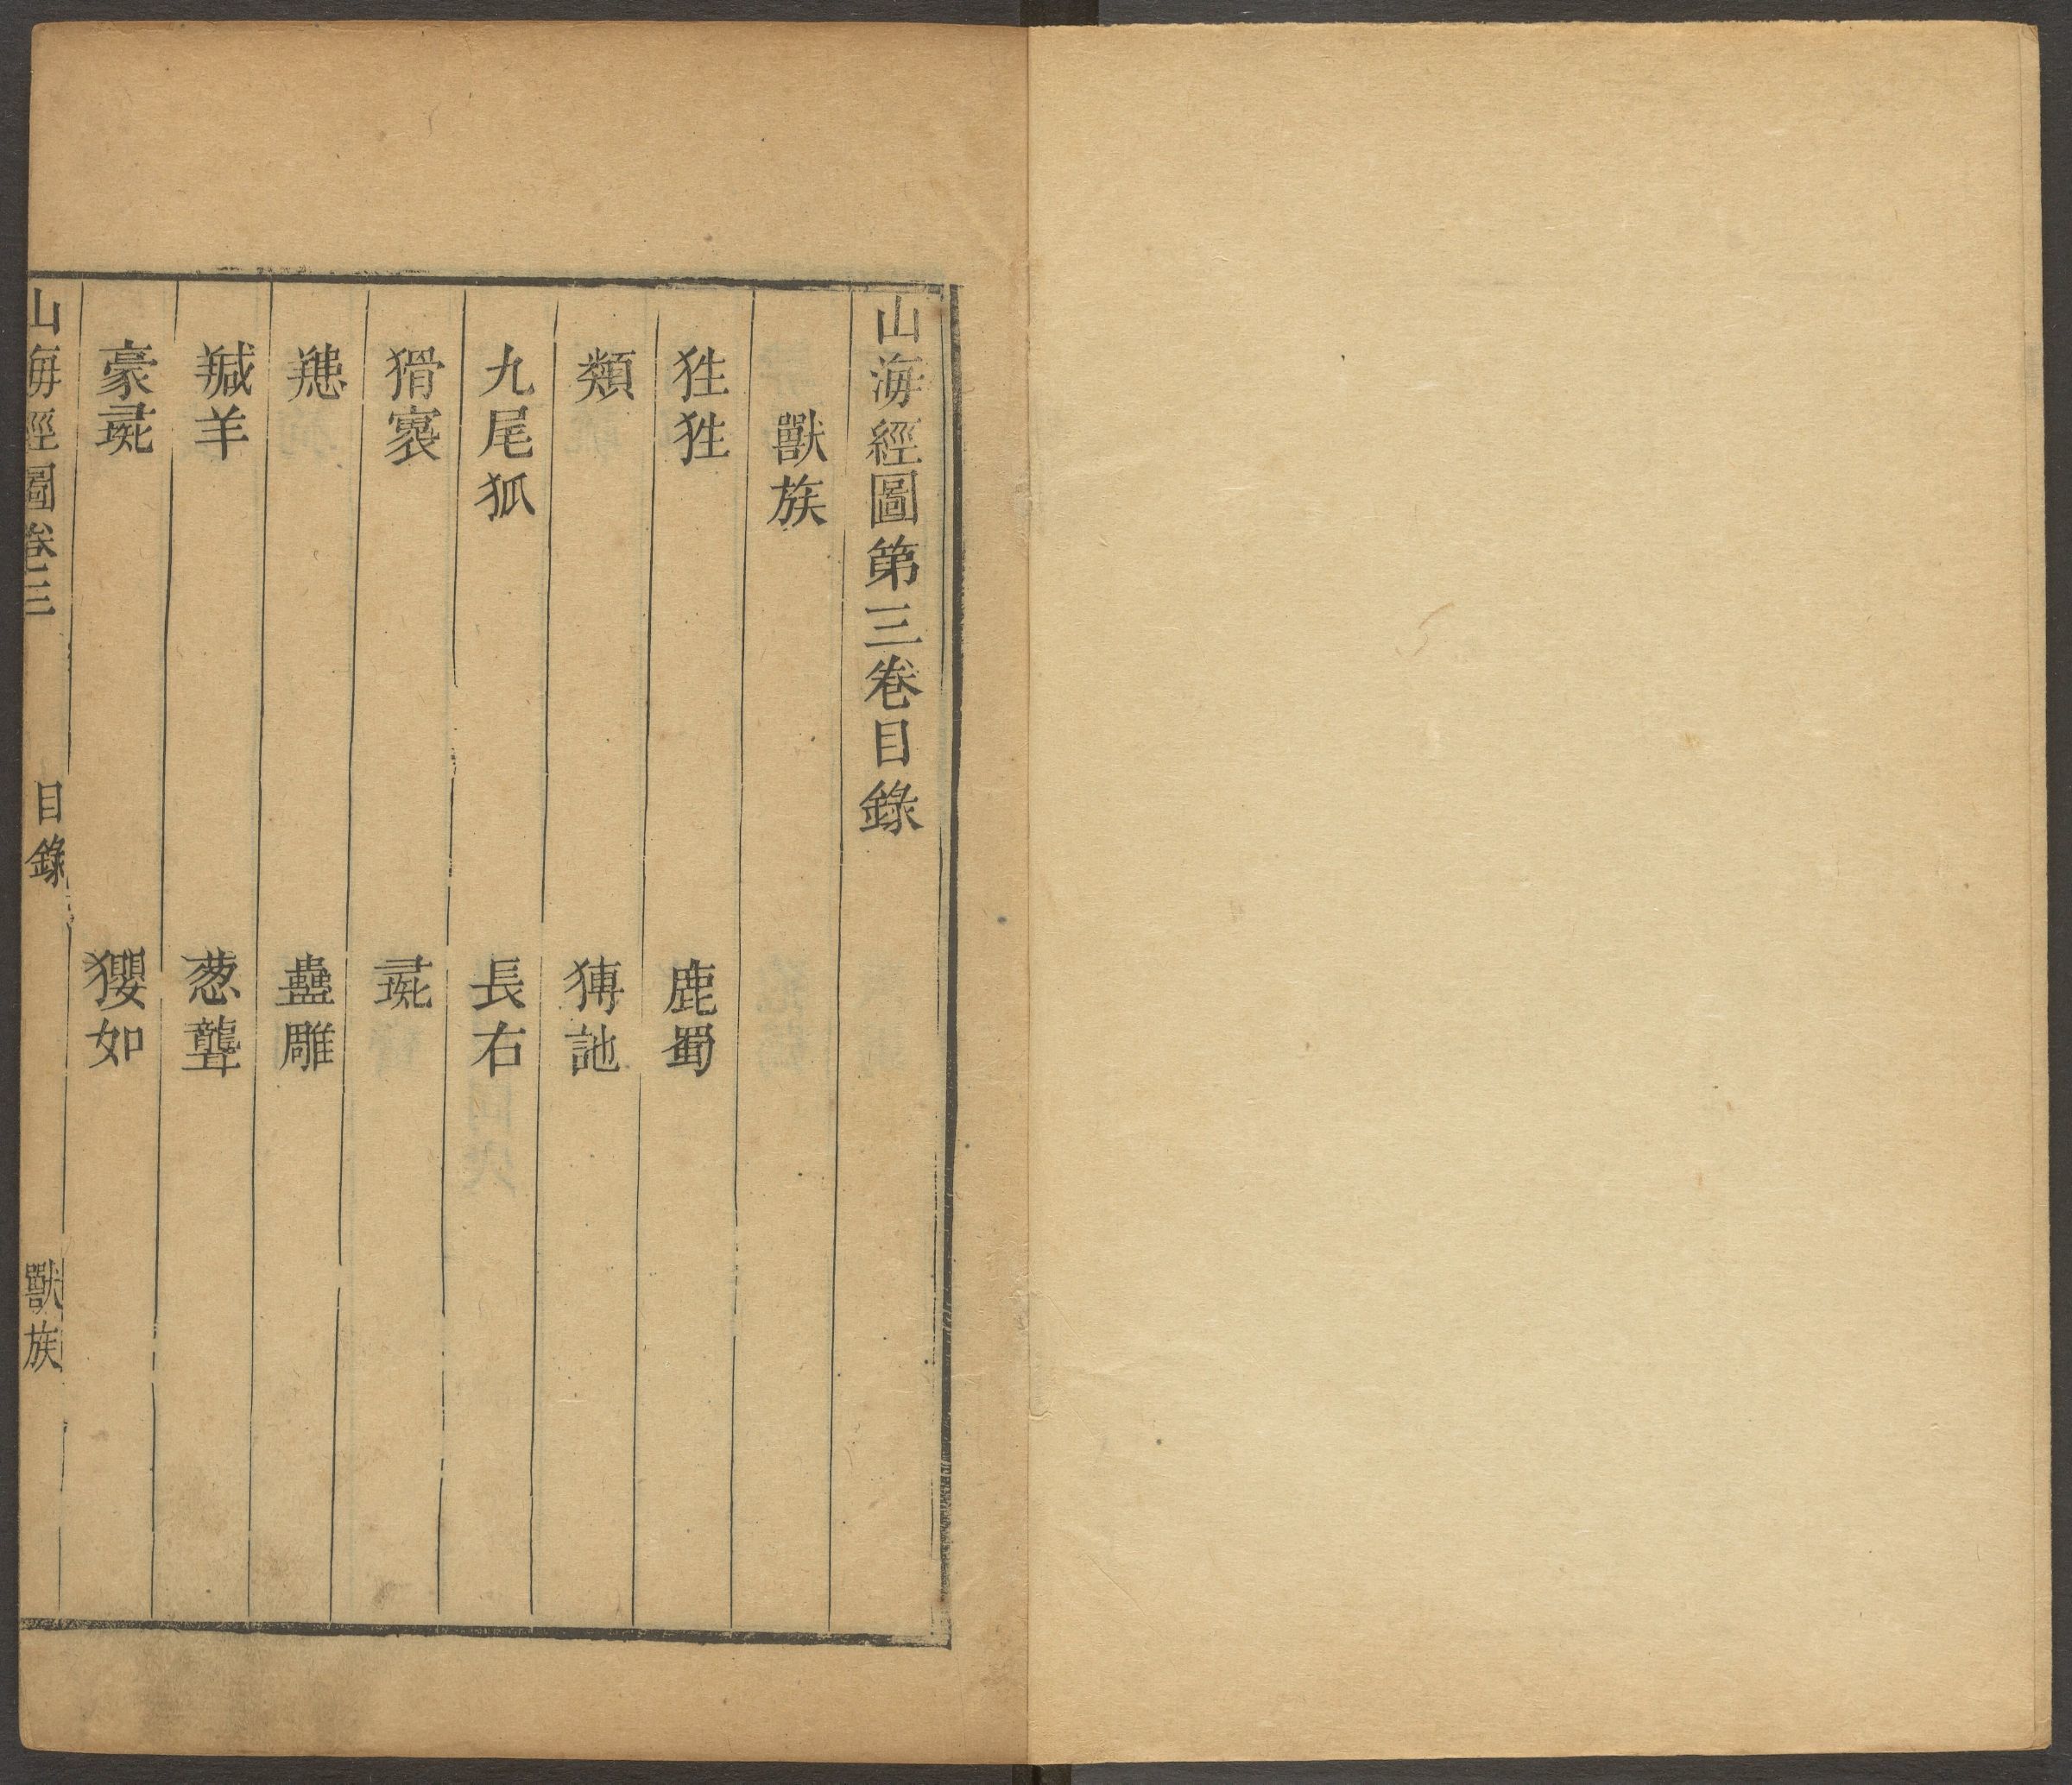 山海經圖第三卷目錄
獸族
狌狌 鹿蜀
類 猼訑
九尾狐 長右
猾褢 彘
䍺 蠱雕
羬羊 葱聾
豪彘 玃如
山海經圖卷三 目錄 獸族